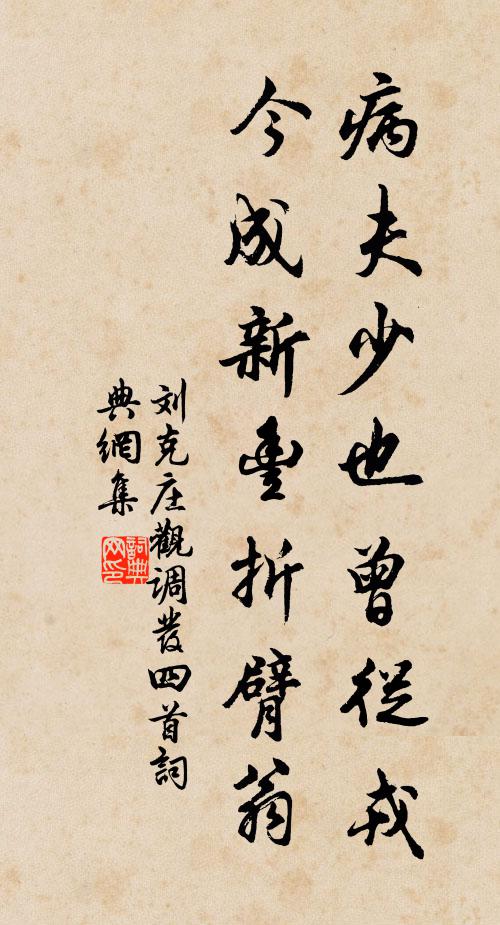 病夫少也曾從戎
今成新豐折臂翁
刘克庄觀调發四首詞
典網集
詞典網印